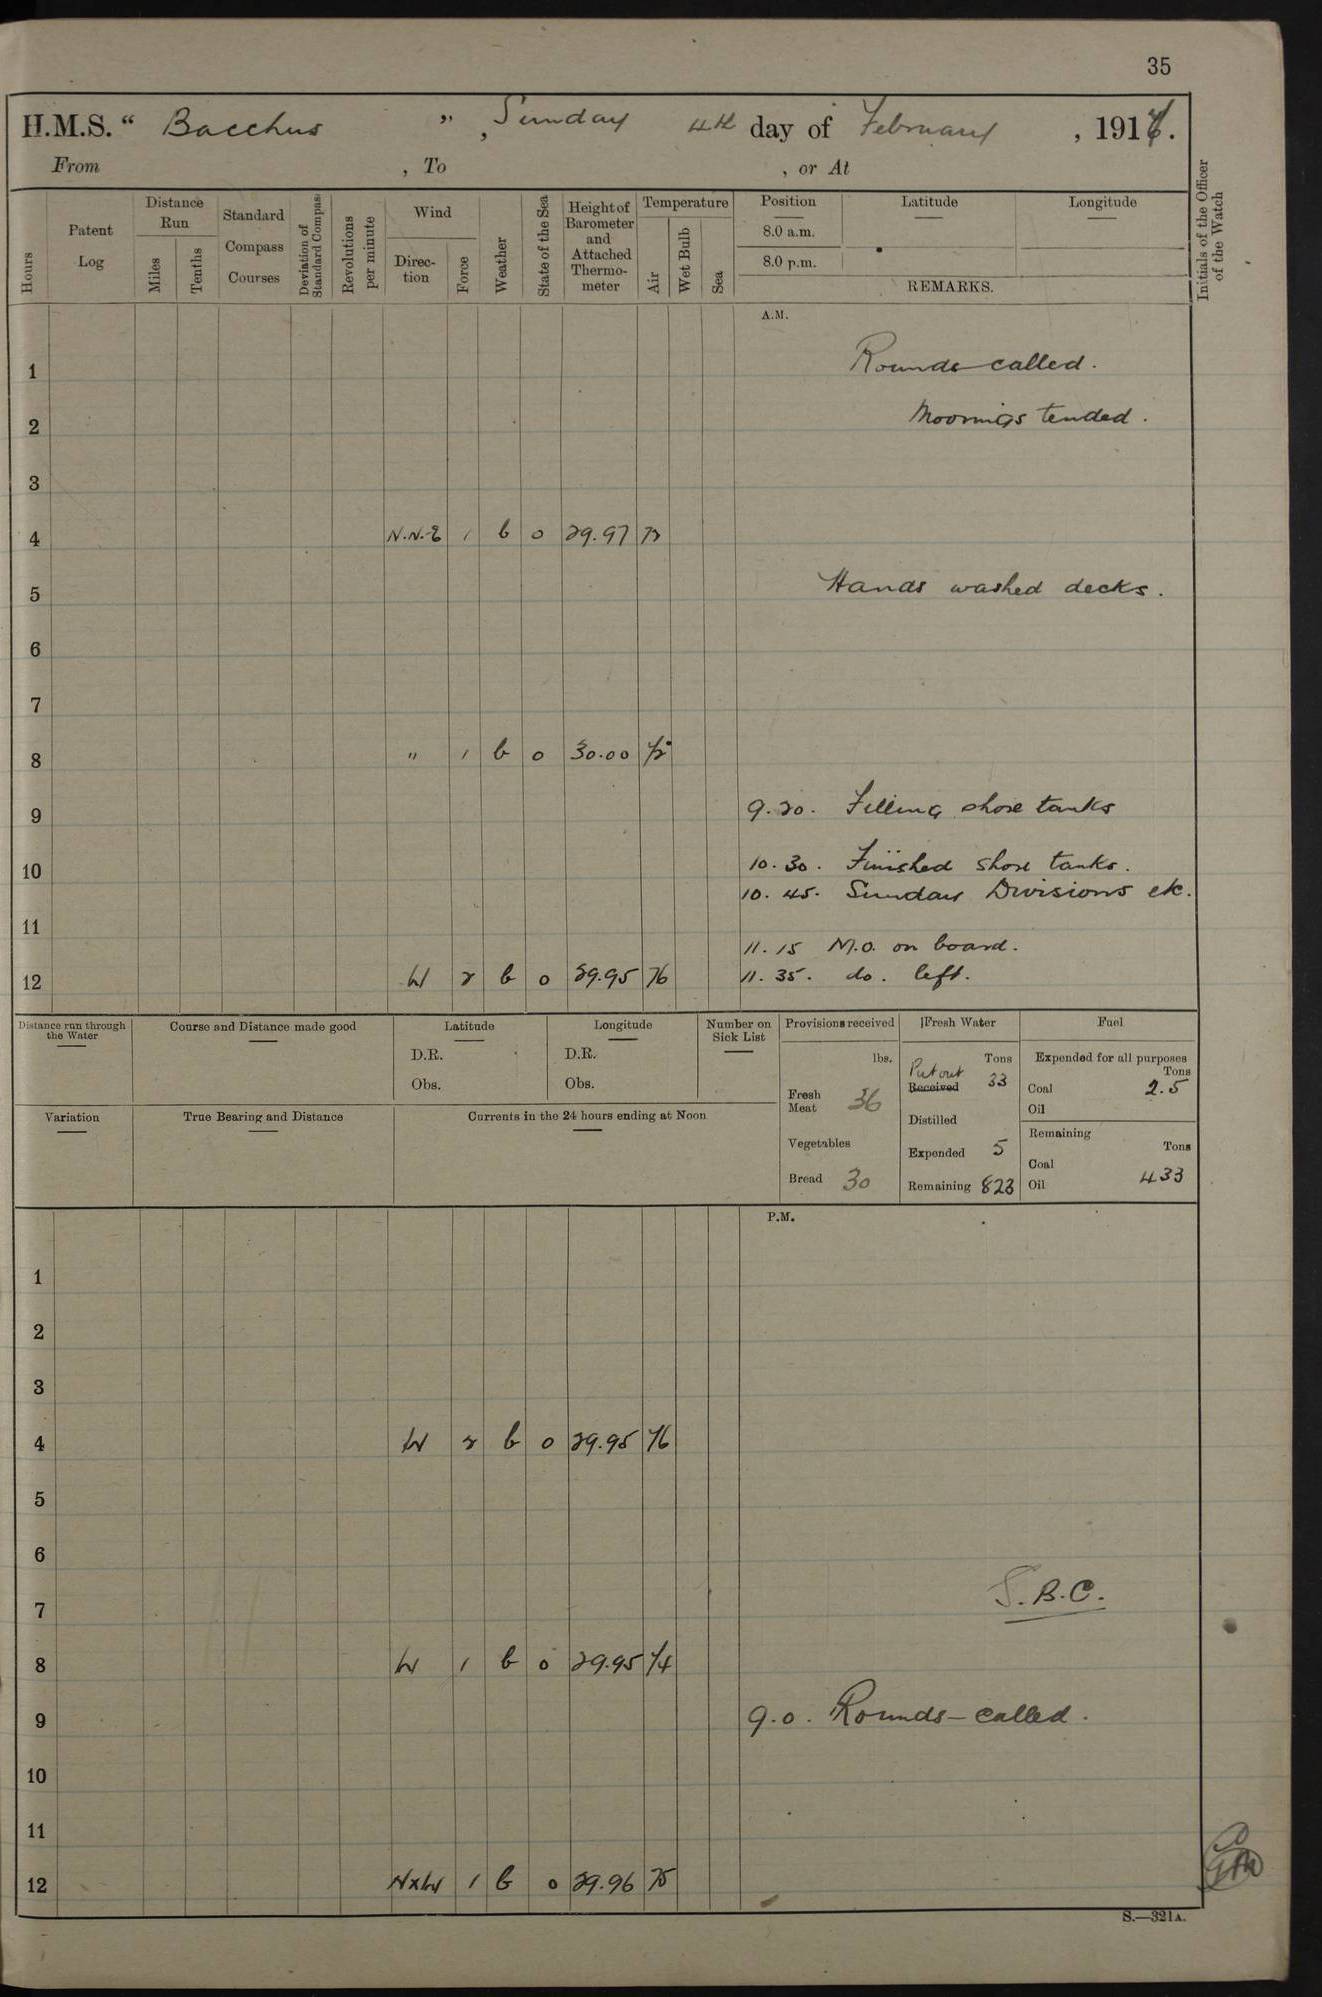 35
H.M.S. “ Bacchus ”, Sunday 4th day of February, 1917.
From , To , or At
Hours
Patent Log
Distance Run
Miles
Tenths
Standard Compass Courses
Deviation of Standard Compass
Revolutions per minute
Wind
Direction
Force
Weather
State of the Sea
Height of Barometer and Attached Thermometer
Temperature
Air
Wet Bulb
Sea
Position
8.0 a.m.
8.0 p.m.
Latitude
Longitude
REMARKS.
Initials of the Officer of the Watch
A.M.
1 Rounds called.
2 Moorings tended.
3
4 N.N.E 1 b o 29.97
5 Hands washed decks.
6
7
8 " 1 b o 30.00 72
9 9.20. Filling shore tanks
10 10.30. Finished shore tanks.
10.45. Sunday Divisions etc.
11
11.15 M.O. on board.
12 W 2 b o 29.95 76 11.35. do. left.
Distance run through the Water
Course and Distance made good
Latitude
D.R.
Obs.
Longitude
D.R.
Obs.
Number on Sick List
Provisions received
lbs.
Fresh Meat 36
Vegetables
Bread 30
Fresh Water
Tons
Put out
Received 33
Distilled
Expended 5
Remaining 823
Fuel
Expended for all purposes
Tons
Coal 2.5
Oil
Remaining
Tons
Coal
Oil 433
Variation
True Bearing and Distance
Currents in the 24 hours ending at Noon
P.M.
1
2
3
4 W 2 b o 29.95 76
5
6
7 S.B.C.
8 W 1 b o 29.95 74
9 9.0. Rounds – called.
10
11
12 NxW 1 b o 29.96 75
S.—321A.